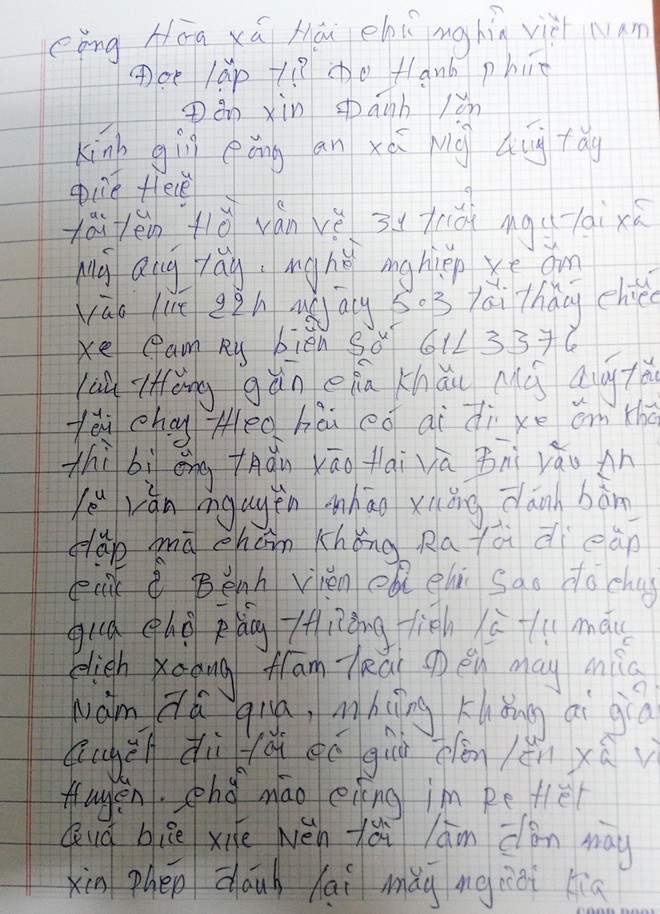 Cộng Hòa xã Hội chủ nghĩa việt Nam
Đọc lập tự Do Hạnh phúc
Đơn xin Đánh lộn
Kính gửi công an xã Mỹ Quý tây
Đức Huệ
tôi tên Hồ văn vẽ 31 tuổi ngụ tại xã
Mỹ Quý tây. nghề nghiệp xe ôm
vào lúc 22h ngày 5.3 tôi thấy chiếc
xe Cam Ry biển Số 61L 3376
lưu thông gần cửa khẩu Mỹ Quý tây
tôi chạy theo hỏi có ai đi xe ôm khôn
thì bị ông trần vào Hai và Bùi văn An
lê văn nguyên nhào xuống đánh bầm
dập mà chồm không Ra tôi đi cấp
cứu ở Bệnh viện sao đó chuy
qua chợ Rẫy thương tích là tụ máu
dịch xoang Hàm trái Đến nay nữa
Năm đã qua, nhưng không ai giải
Quyết dù tôi có gửi đơn lên xã và
Huyện. chổ nào cũng im Re Hết
Quá bức xúc Nên tôi làm đơn này
xin phép đánh lại mấy người kia